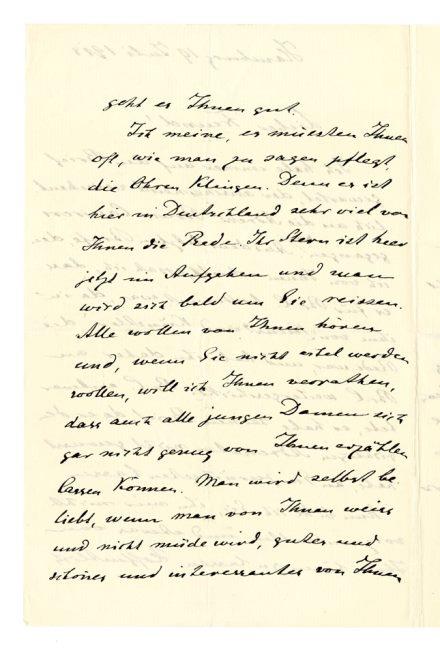 geht es Ihnen gut.
Ich meine, es müssten Ihnen
oft, wie man zu sagen pflegt,
die Ohren klingen. Denn es ist
hier in Deutschland sehr viel von
Ihnen die Rede. Ihr Stern ist hier
jetzt im Aufgehen und man
wird sich bald um Sie reissen.
Alle wollen von Ihnen hören
und, wenn Sie nicht eitel werden
wollen, will ich Ihnen verrathen,
dass auch alle jungen Damen sich
gar nicht genug von Ihnen erzählen
lassen können. Man wird selbst be
liebt, wenn man von Ihnen weiss
und nicht müde wird, gutes und
schönes und interessantes von Ihnen